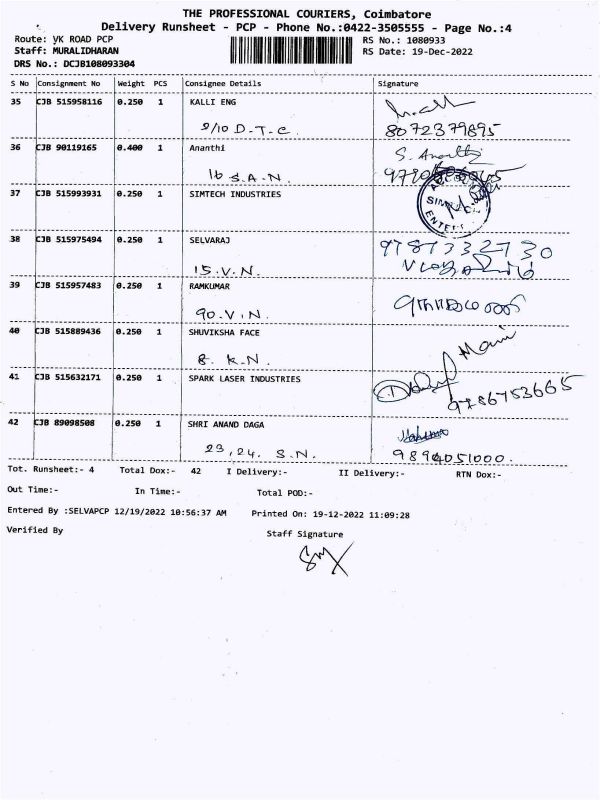 THE PROFESSIONAL COURIERS, Coimbatore
Delivery Runsheet - PCP - Phone No.:0422-3505555 - Page No.:4
Route: YK ROAD PCP RS No.: 1080933
Staff: MURALIDHARAN RS Date: 19-Dec-2022
DRS No.: DCJB108093304
S No Consignment No Weight PCS Consignee Details Signature
35 CJB 515958116 0.250 1 KALLI ENG
9/10 D.T.C. 8072379895
36 CJB 90119165 0.400 1 Ananthi S. Ananthi
16 S.A.N.
37 CJB 515993931 0.250 1 SIMTECH INDUSTRIES
38 CJB 515975494 0.250 1 SELVARAJ 9787332730
15.V.N.
39 CJB 515957483 0.250 1 RAMKUMAR
90.V.N.
40 CJB 515889436 0.250 1 SHUVIKSHA FACE Mani
8. K.N.
41 CJB 515632171 0.250 1 SPARK LASER INDUSTRIES
9786753665
42 CJB 89098508 0.250 1 SHRI ANAND DAGA
23,24. S.N. 9894051000.
Tot. Runsheet:- 4 Total Dox:- 42 I Delivery:- II Delivery:- RTN Dox:-
Out Time:- In Time:- Total POD:-
Entered By :SELVAPCP 12/19/2022 10:56:37 AM Printed On: 19-12-2022 11:09:28
Verified By Staff Signature